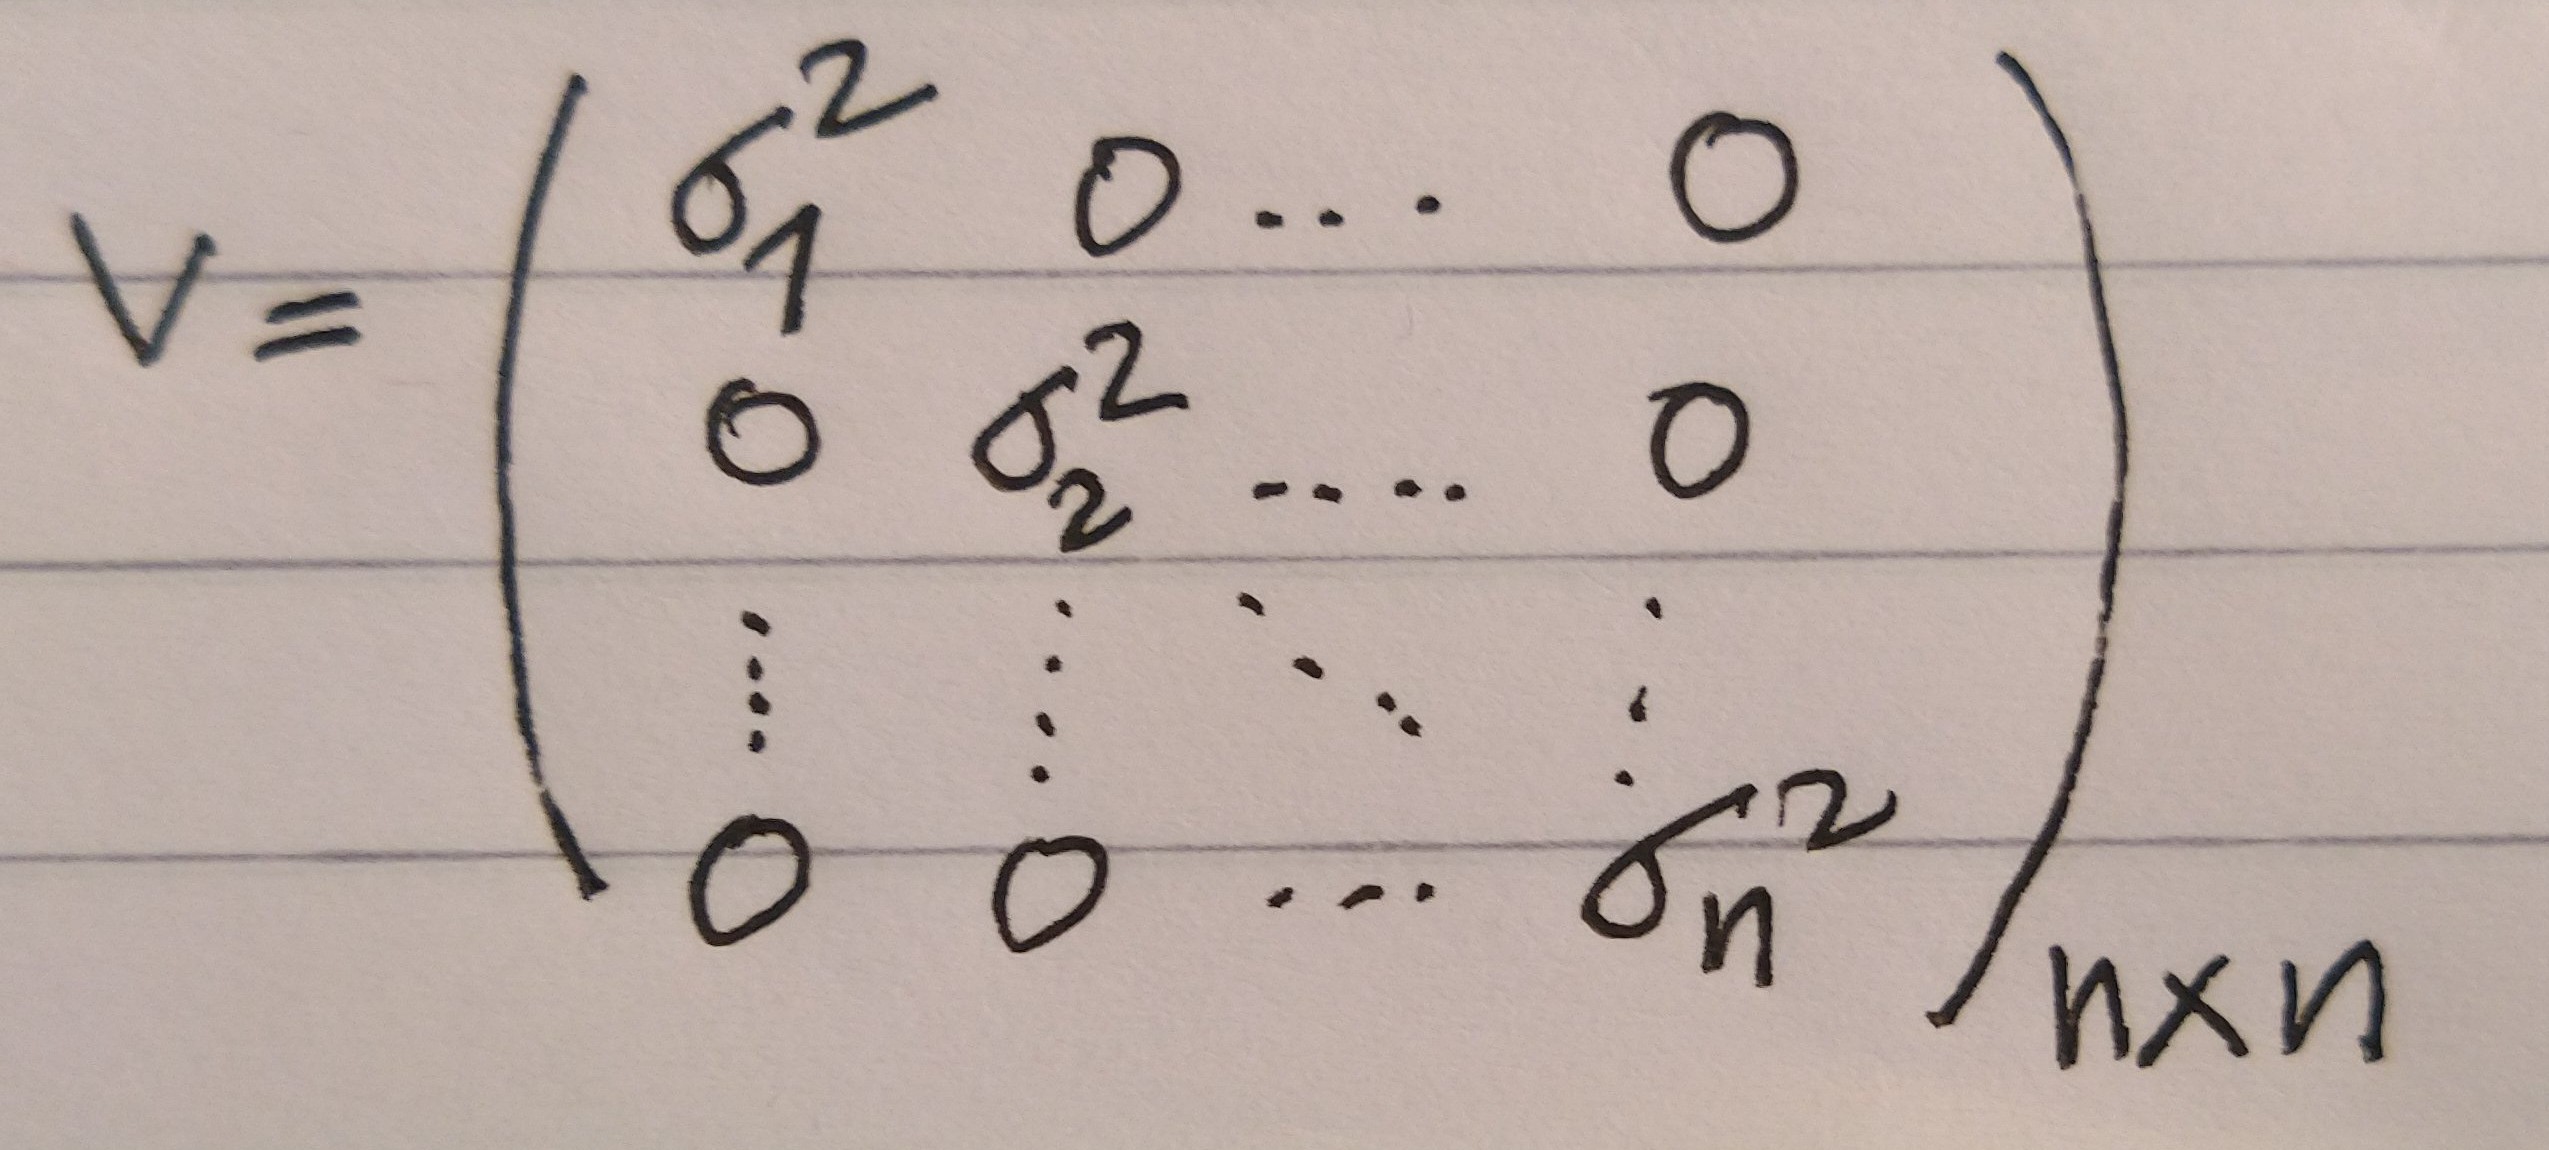 V = ( σ₁² 0 ... 0
0 σ₂² .... 0
⋮ ⋮ ⋱ ⋮
0 0 ... σₙ² )ₙₓₙ